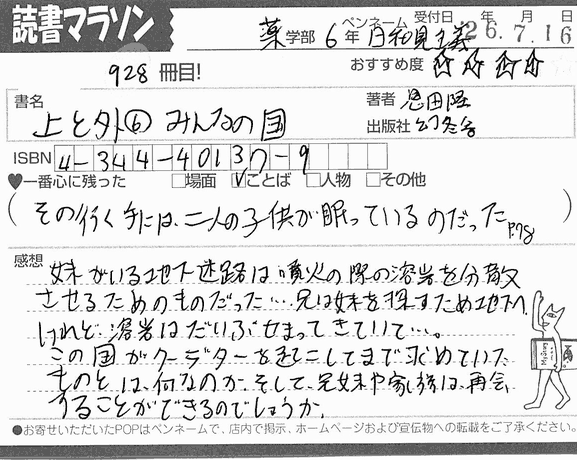 読書マラソン
薬学部 6年 ペンネーム 日和見主義 受付日 26年7.16
928 冊目!
おすすめ度 ☆☆☆☆
書名 上と外⑥ みんなの国
著者 恩田陸
出版社 幻冬舎
ISBN 4-344-40137-9
♥一番心に残った □場面 ☑ことば □人物 □その他
(その行く手には、二人の子供が眠っているのだった P78)
感想 妹がいる地下迷路は噴火の際の溶岩を分散
させるためのものだった…兄は妹を探すため地下へ。
けれど溶岩はだいぶせまってきていて…。
この国がクーデターを起こしてまで求めていた
ものとは、何なのか。そして、兄妹や家族は、再会
することができるのでしょうか。
●お寄せいただいたPOPはペンネームで、店内で掲示、ホームページおよび宣伝物への転載をご了承ください。